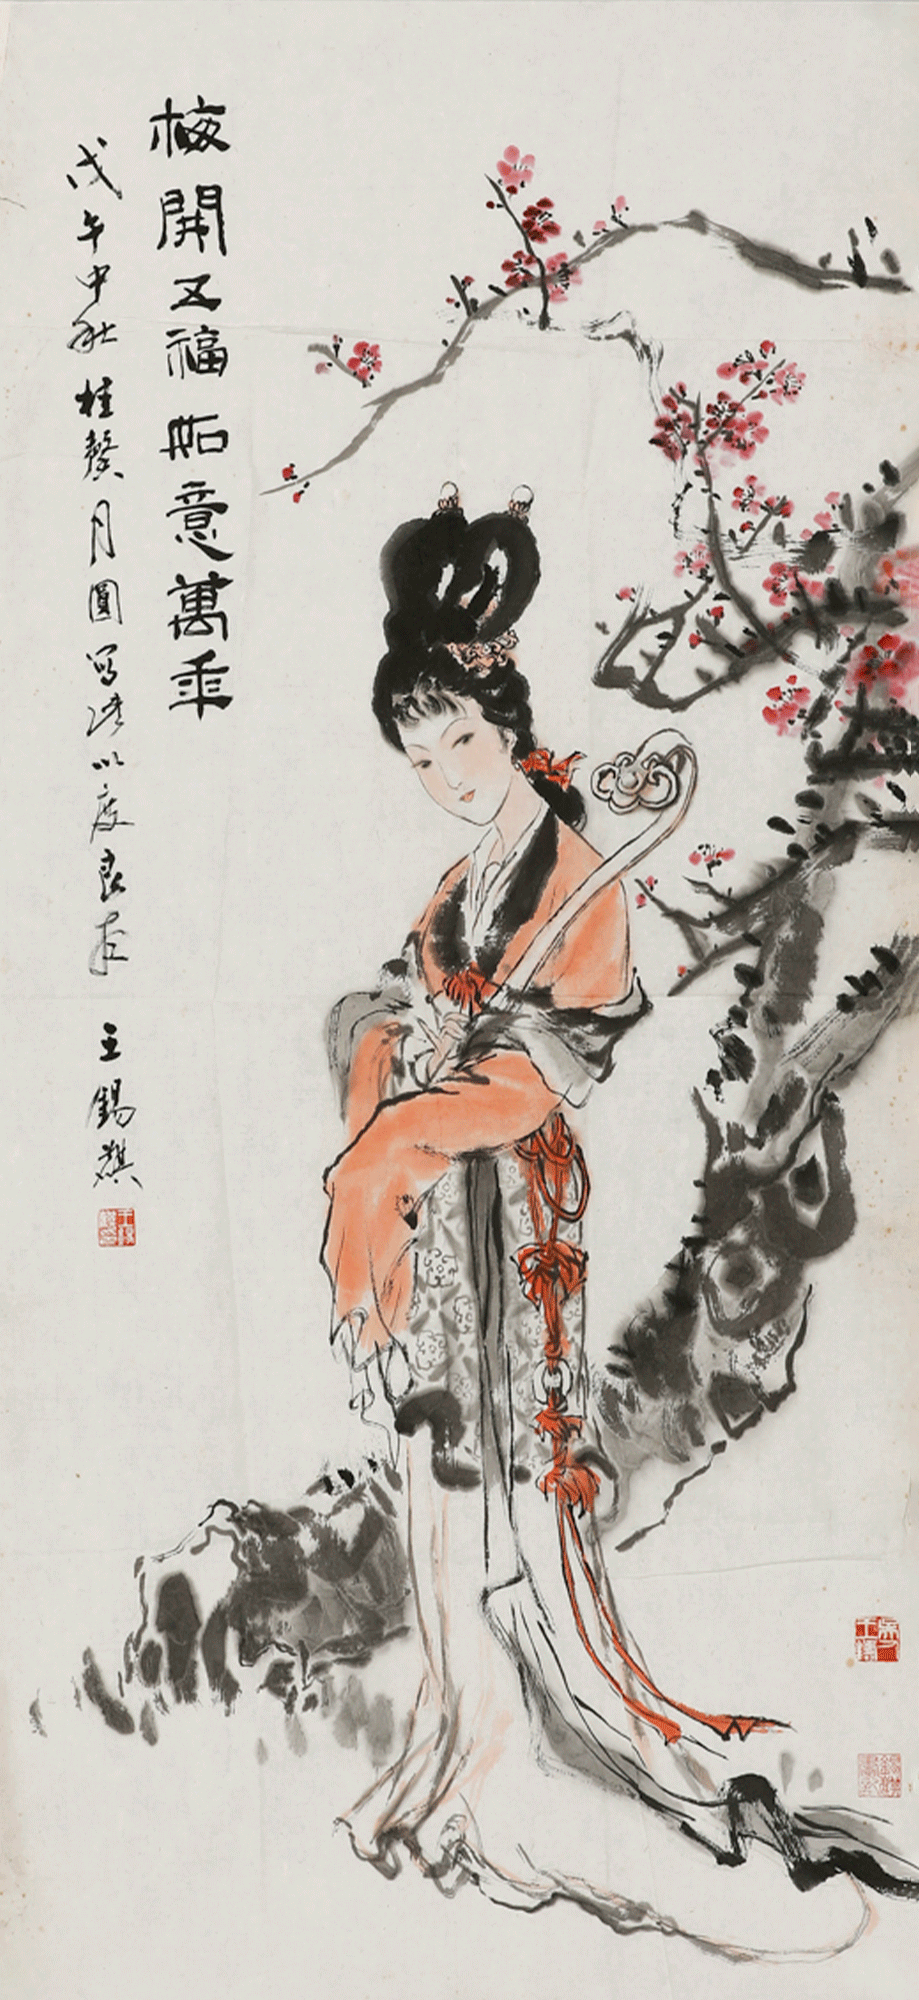 梅開五福如意萬年
戊午中秋桂馨月圓写此以度良夜
王錫麒